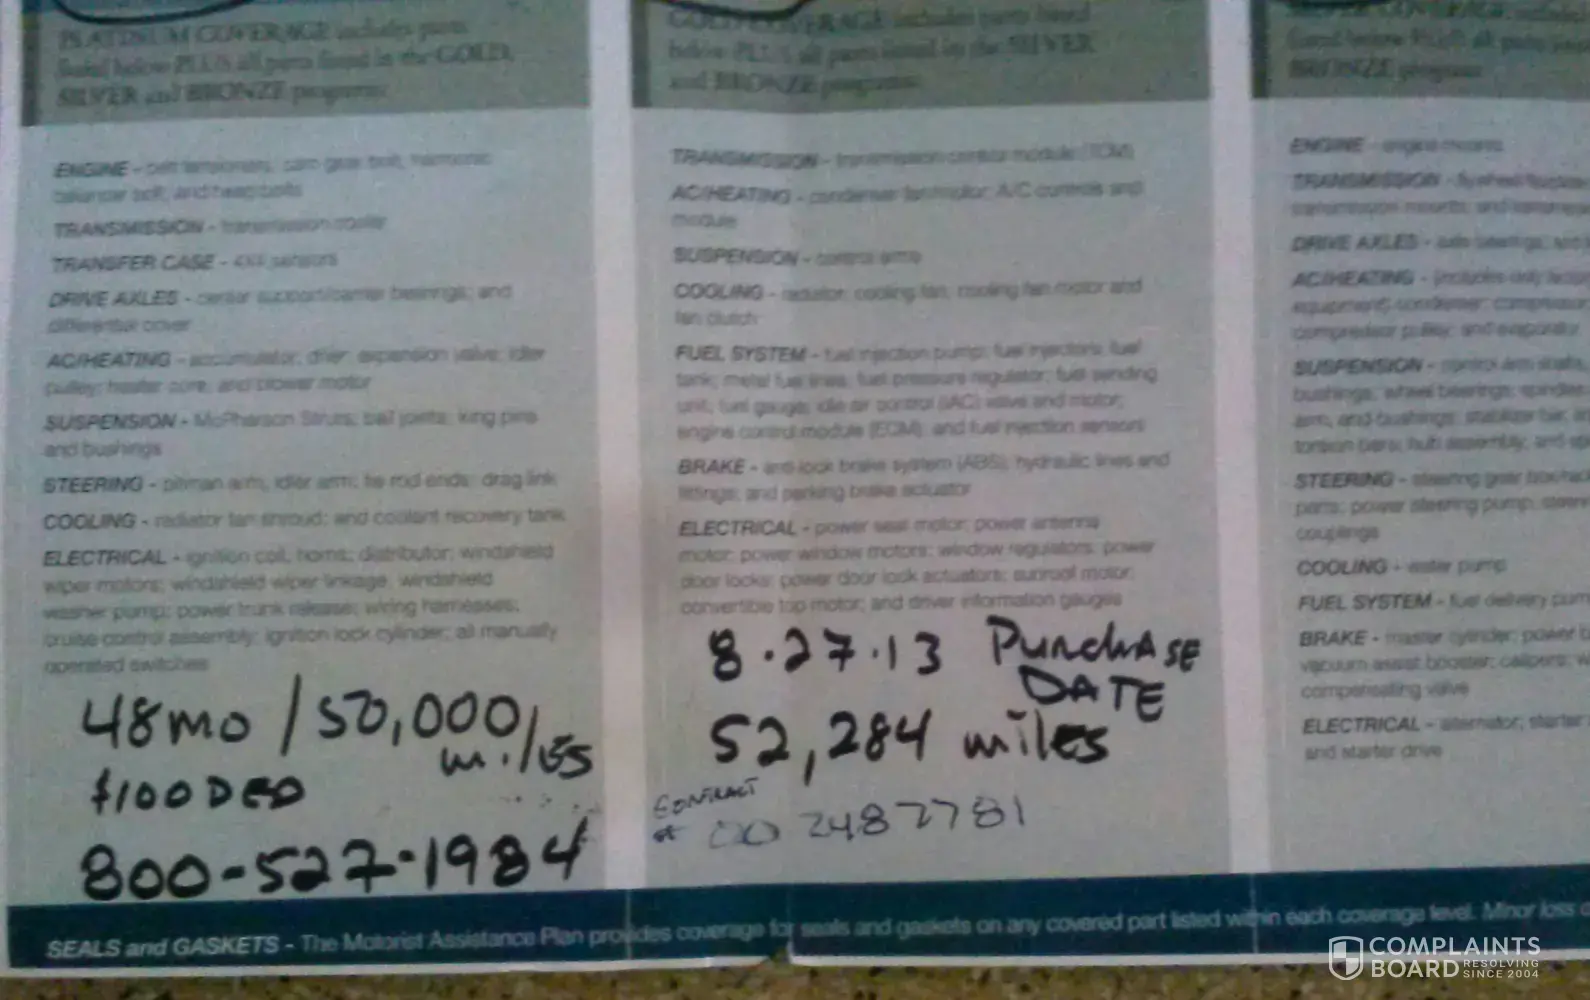 PLATINUM COVERAGE includes parts
listed below PLUS all parts listed in the GOLD,
SILVER and BRONZE programs:
ENGINE - belt tensioners; cam gear bolt; harmonic
balancer bolt; and head bolts
TRANSMISSION - transmission cooler
TRANSFER CASE - 4X4 sensors
DRIVE AXLES - center support/carrier bearings; and
differential cover
AC/HEATING - accumulator; drier; expansion valve; idler
pulley; heater core; and blower motor
SUSPENSION - McPherson Struts; ball joints; king pins
and bushings
STEERING - pitman arm, idler arm; tie rod ends; drag link
COOLING - radiator fan shroud; and coolant recovery tank
ELECTRICAL - ignition coil, horns; distributor; windshield
wiper motors; windshield wiper linkage, windshield
washer pump; power trunk release; wiring harnesses;
cruise control assembly; ignition lock cylinder; all manually
operated switches
48mo / 50,000/
miles
$100 DED
800-527-1984
GOLD COVERAGE includes parts listed
below PLUS all parts listed in the SILVER
and BRONZE programs:
TRANSMISSION - transmission control module (TCM)
AC/HEATING - condenser fan motor; A/C controls and
module
SUSPENSION - control arms
COOLING - radiator; cooling fan; cooling fan motor and
fan clutch
FUEL SYSTEM - fuel injection pump; fuel injectors; fuel
tank; metal fuel lines; fuel pressure regulator; fuel sending
unit; fuel gauge; idle air control (IAC) valve and motor;
engine control module (ECM); and fuel injection sensors
BRAKE - anti-lock brake system (ABS); hydraulic lines and
fittings; and parking brake actuator
ELECTRICAL - power seat motor; power antenna
motor; power window motors; window regulators; power
door locks; power door lock actuators; sunroof motor;
convertible top motor; and driver information gauges
8.27.13 Purchase
DATE
52,284 miles
CONTRACT
# 002487781
SILVER COVERAGE
listed below PLUS all parts
BRONZE program:
ENGINE - engine mounts
TRANSMISSION - flywheel
transmission mounts; and
DRIVE AXLES - axle bearings; and
AC/HEATING - (includes only
equipment) condenser; compressor
compressor pulley; and evaporator
SUSPENSION - control arm shafts,
bushings; wheel bearings; spindles
arm, and bushings; stabilizer bar;
torsion bars; hub assembly; and
STEERING - steering gear box
parts; power steering pump;
couplings
COOLING - water pump
FUEL SYSTEM - fuel delivery pump
BRAKE - master cylinder; power
vacuum assist booster; calipers;
compensating valve
ELECTRICAL - alternator; starter
and starter drive
SEALS and GASKETS - The Motorist Assistance Plan provides coverage for seals and gaskets on any covered part listed within each coverage level. Minor loss
COMPLAINTS
BOARD RESOLVING
SINCE 2004